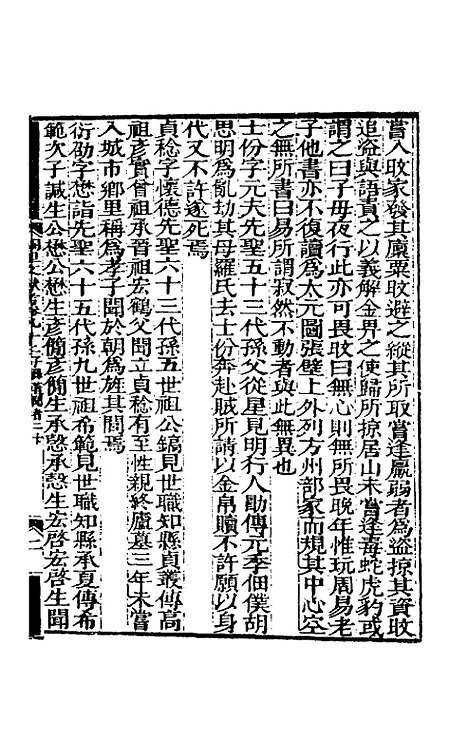 嘗入旼家發其廩粟旼避之縱其所取嘗逢羸弱者為盜掠其資旼
追盜與語責之以義解金畀之使歸所掠居山未嘗逢毒蛇虎豹或
謂之曰子毋夜行此亦可畏旼曰無心則無所畏晚年惟玩周易老
子他書亦不復讀為太元圖張壁上外列方州部家而規其中心空
之無所書曰易所謂寂然不動者與此無異也
士份字元夫先聖五十三代孫父從星見明行人勛傳元季佃僕胡
思明為亂劫其母羅氏去士份奔赴賊所請以金帛贖不許願以身
代又不許遂死焉
貞稔字懷德先聖六十三代孫五世祖公鎬見世職知縣貞叢傳高
祖彥賓曾祖承晉祖宏鶴父聞立貞稔有至性親終廬墓三年未嘗
入城市鄉里稱為孝子聞於朝為旌其閭焉
衍劭字懋詣先聖六十五代孫九世祖希範見世職知縣承夏傳希
範次子諴生公懋公懋生彥簡彥簡生承慤承慤生宏啓宏啓生聞